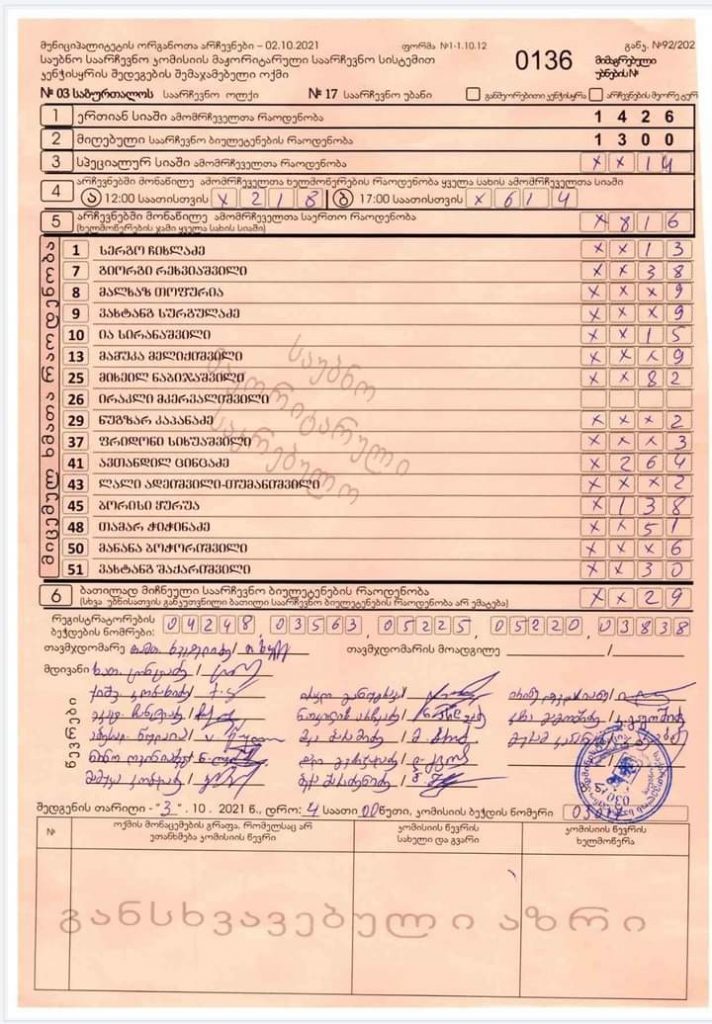 მუნიციპალიტეტის ორგანოთა არჩევნები – 02.10.2021 ფორმა №1-1.10.12 განკ. №92/202
საუბნო საარჩევნო კომისიის მაჟორიტარული საარჩევნო სისტემით 0136 მიმაგრებული
კენჭისყრის შედეგების შემაჯამებელი ოქმი უბნების№
№ 03 საბურთალოს საარჩევნო ოლქი № 17 საარჩევნო უბანი განმეორებითი კენჭისყრა არჩევნების მეორე ტურ
1 ერთიან სიაში ამომრჩეველთა რაოდენობა 1 4 2 6
2 მიღებული საარჩევნო ბიულეტენების რაოდენობა 1 3 0 0
3 სპეციალურ სიაში ამომრჩეველთა რაოდენობა x x 1 4
4 არჩევნებში მონაწილე ამომრჩეველთა ხელმოწერების რაოდენობა ყველა სახის ამომრჩეველთა სიაში
ა 12:00 საათისთვის x 2 1 8 ბ 17:00 საათისთვის x 6 1 4
5 არჩევნებში მონაწილე ამომრჩეველთა საერთო რაოდენობა x 8 1 6
(ხელმოწერების ჯამი ყველა სახის სიაში)
მიცემულ ხმათა რაოდენობა
1 სერგო ჩიხლაძე x x 1 3
7 გიორგი რეხვიაშვილი x x 3 8
8 მალხაზ თოფურია x x x 9
9 ვახტანგ სურგულაძე x x x 9
10 ია სირანაშვილი x x 1 5
13 მამუკა მელიქიშვილი x x x 9
25 მიხეილ ნაბიჯაშვილი x x 8 2
26 ირაკლი მკერვალიშვილი
29 ნუგზარ კაპანაძე x x x 2
37 ფრიდონი სიხუაშვილი x x x 3
41 ავთანდილ ცინცაძე x 2 6 4
43 ლალი ადეიშვილი-თუმანიშვილი x x x 2
45 ბორისი ყურუა x 1 3 8
48 თამარ ჭიჭინაძე x x 5 1
50 მანანა ბოჭორიშვილი x x x 6
51 ვახტანგ შაქარიშვილი x x 3 0
საუბნო
მაჟორიტარული
საკრებულო
6 ბათილად მიჩნეული საარჩევნო ბიულეტენების რაოდენობა x x 2 9
(სხვა უბნისათვის განკუთვნილი ბათილი საარჩევნო ბიულეტენების რაოდენობა არ ემატება)
რეგისტრატორების
ბეჭდების ნომრები: 04248 03563, 05225, 05220, 03838
თავმჯდომარე / თავმჯდომარის მოადგილე /
მდივანი /
წევრები
შედგენის თარიღი - "3". 10. 2021 წ., დრო: 4 საათი 00 წუთი, კომისიის ბეჭდის ნომერი
№ ოქმის მონაცემების გრაფა, რომელსაც არ ეთანხმება კომისიის წევრი კომისიის წევრის სახელი და გვარი კომისიის წევრის ხელმოწერა
განსხვავებული აზრი